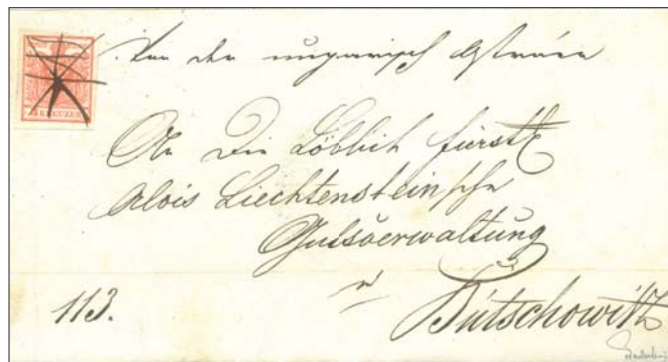 KREUZER
Von der ungarisch
An Die Löblich fürstl
Alois Liechtenstein'sche
Gutsverwaltung
Butschowitz
113.